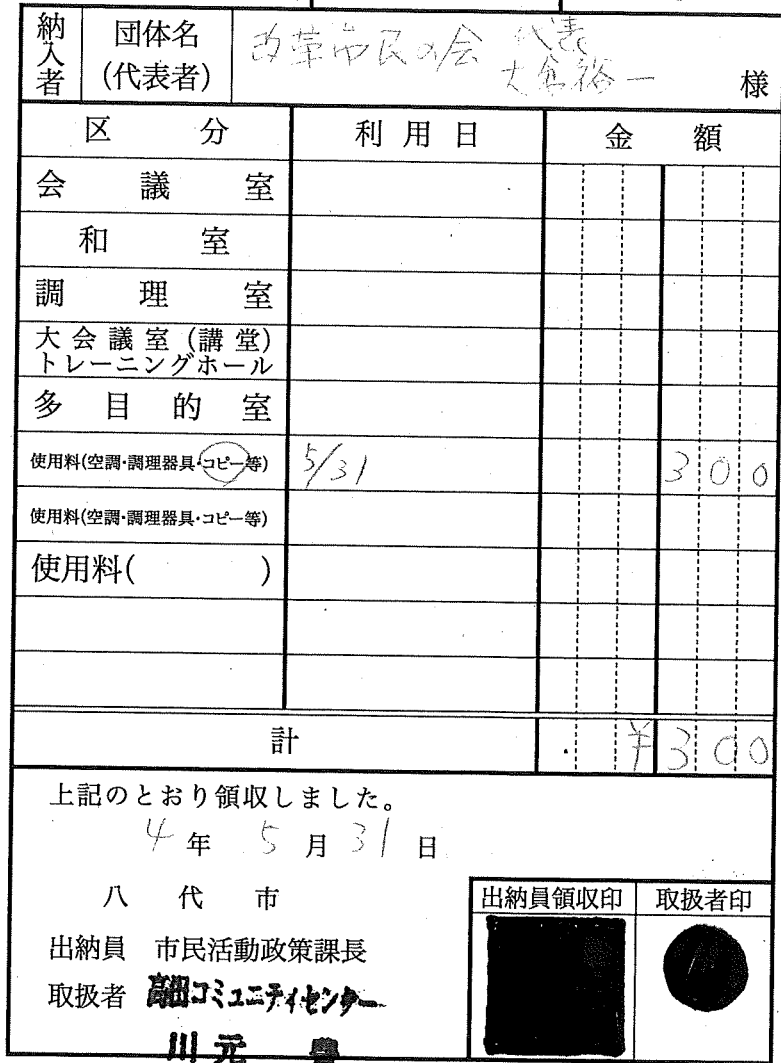 納入者 団体名 改革市民の会 代表
(代表者) 大倉裕一 様
区分 利用日 金額
会議室
和室
調理室
大会議室(講堂)
トレーニングホール
多目的室
使用料(空調・調理器具・コピー等) 5/31 300
使用料(空調・調理器具・コピー等)
使用料( )
計 ¥300
上記のとおり領収しました。
4年5月31日
八代市
出納員領収印 取扱者印
出納員 市民活動政策課長
取扱者 高田コミュニティセンター
川元 豊